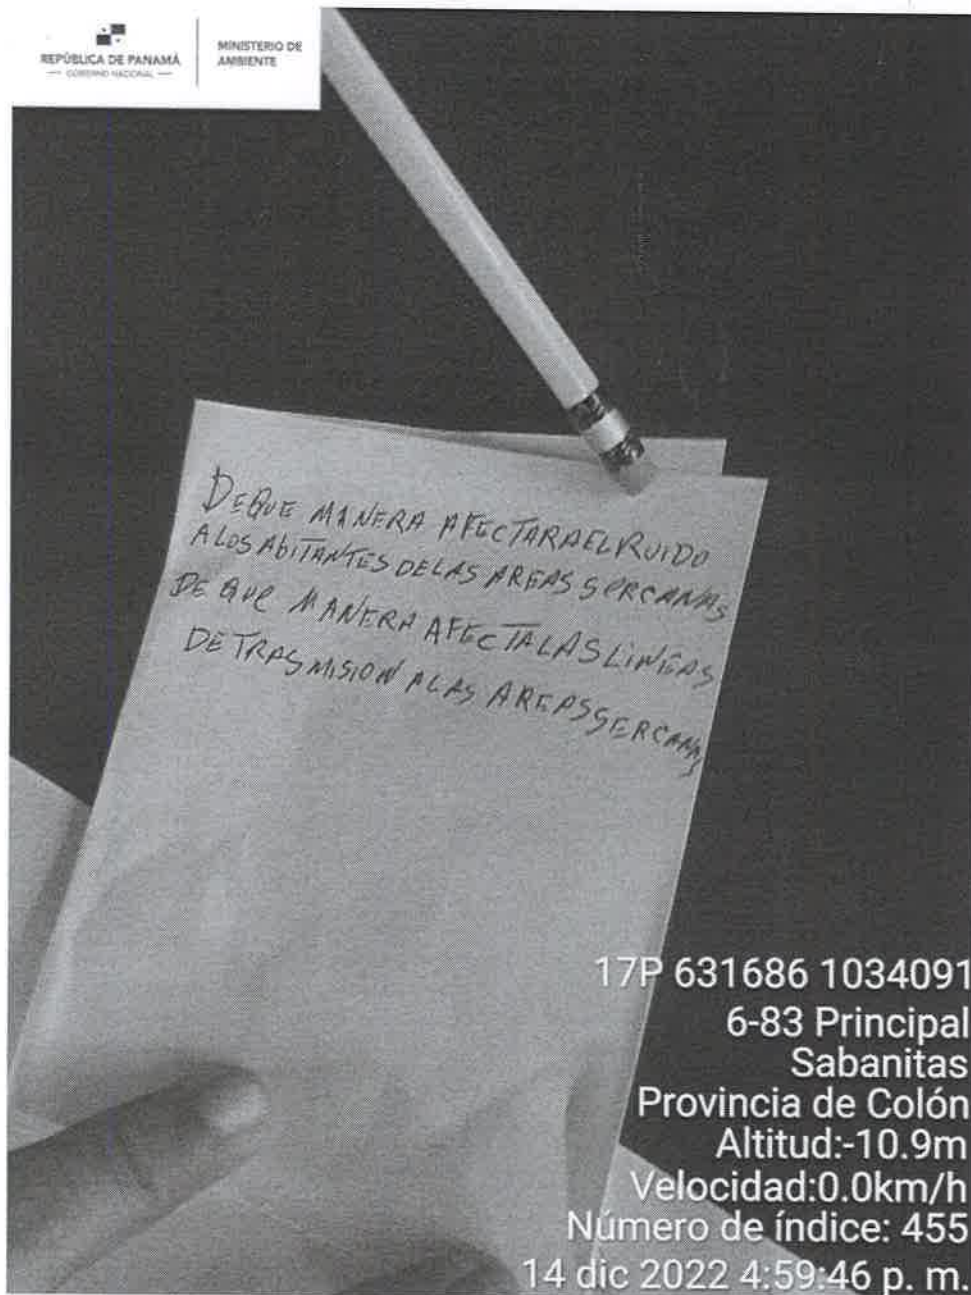 REPÚBLICA DE PANAMÁ
— GOBIERNO NACIONAL —
MINISTERIO DE
AMBIENTE
DEQUE MANERA AFECTARAEL RUIDO
A LOS ABITANTES DE LAS AREAS SERCANAS
DE QUE MANERA AFECTA LAS LINEAS
DE TRASMISION A LAS AREAS SERCANAS
17P 631686 1034091
6-83 Principal
Sabanitas
Provincia de Colón
Altitud:-10.9m
Velocidad:0.0km/h
Número de índice: 455
14 dic 2022 4:59:46 p. m.